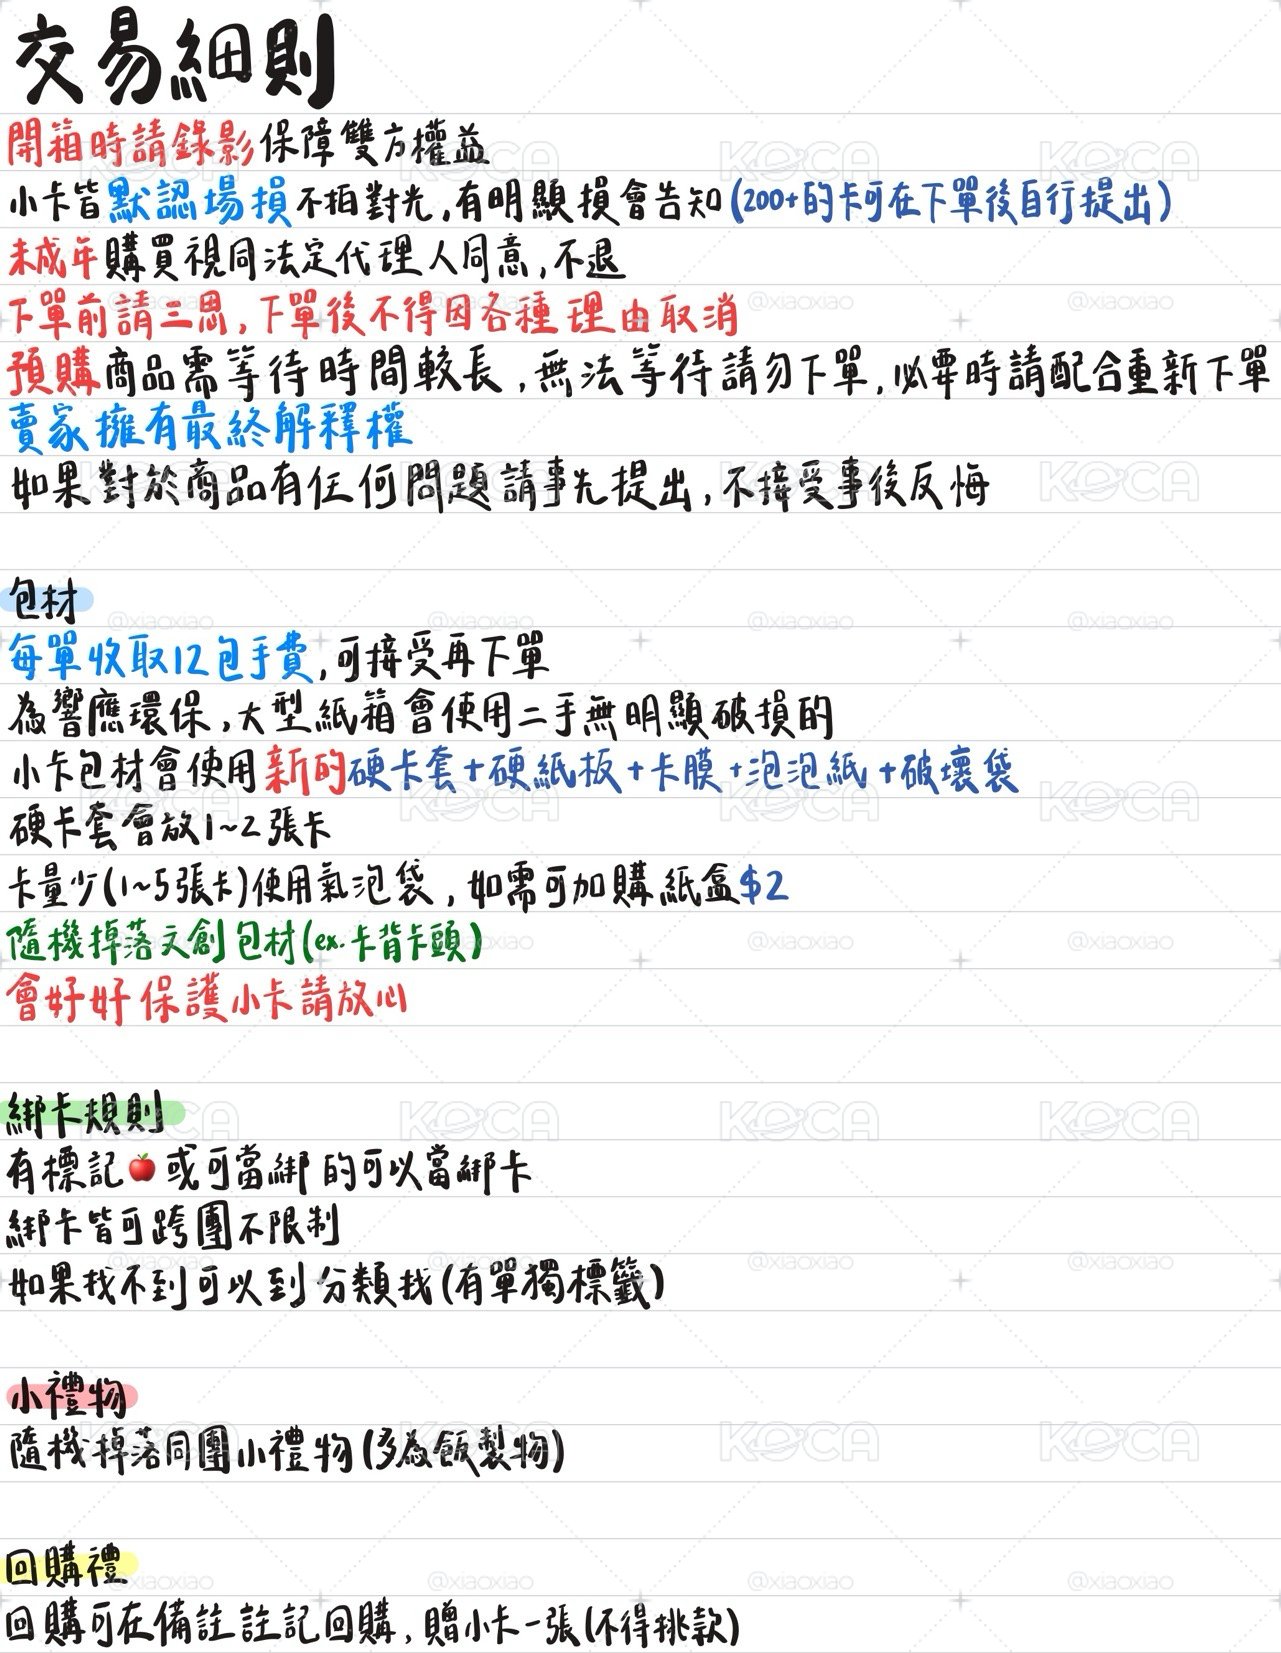 交易細則
開箱時請錄影保障雙方權益
小卡皆默認場損不拍對光,有明顯損會告知(200+的卡可在下單後自行提出)
未成年購買視同法定代理人同意,不退
下單前請三思,下單後不得因各種理由取消
預購商品需等待時間較長,無法等待請勿下單,必要時請配合重新下單
賣家擁有最終解釋權
如果對於商品有任何問題請事先提出,不接受事後反悔
包材
每單收取12包手費,可接受再下單
為響應環保,大型紙箱會使用二手無明顯破損的
小卡包材會使用新的硬卡套+硬紙板+卡膜+泡泡紙+破壞袋
硬卡套會放1~2張卡
卡量少(1~5張卡)使用氣泡袋,如需可加購紙盒$2
隨機掉落文創包材(ex.卡背卡頭)
會好好保護小卡請放心
綁卡規則
有標記🍎或可當綁的可以當綁卡
綁卡皆可跨團不限制
如果找不到可以到分類找(有單獨標籤)
小禮物
隨機掉落同團小禮物(多為飯製物)
回購禮
回購可在備註註記回購,贈小卡一張(不得挑款)
KOCA
@xiaoxiao